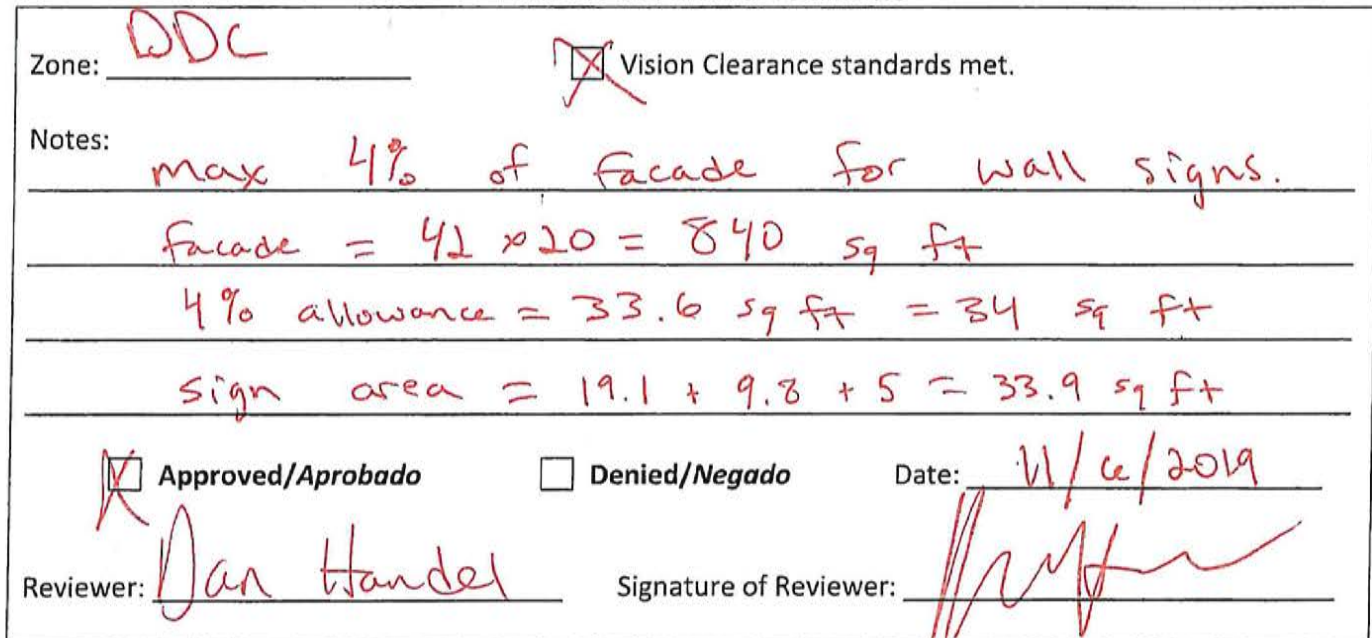 Zone: DDC Vision Clearance standards met.
Notes: max 4% of facade for wall signs.
facade = 42 x 20 = 840 sq ft
4% allowance = 33.6 sq ft = 34 sq ft
sign area = 19.1 + 9.8 + 5 = 33.9 sq ft
Approved/Aprobado Denied/Negado Date: 11/6/2019
Reviewer: Dan Handel Signature of Reviewer: